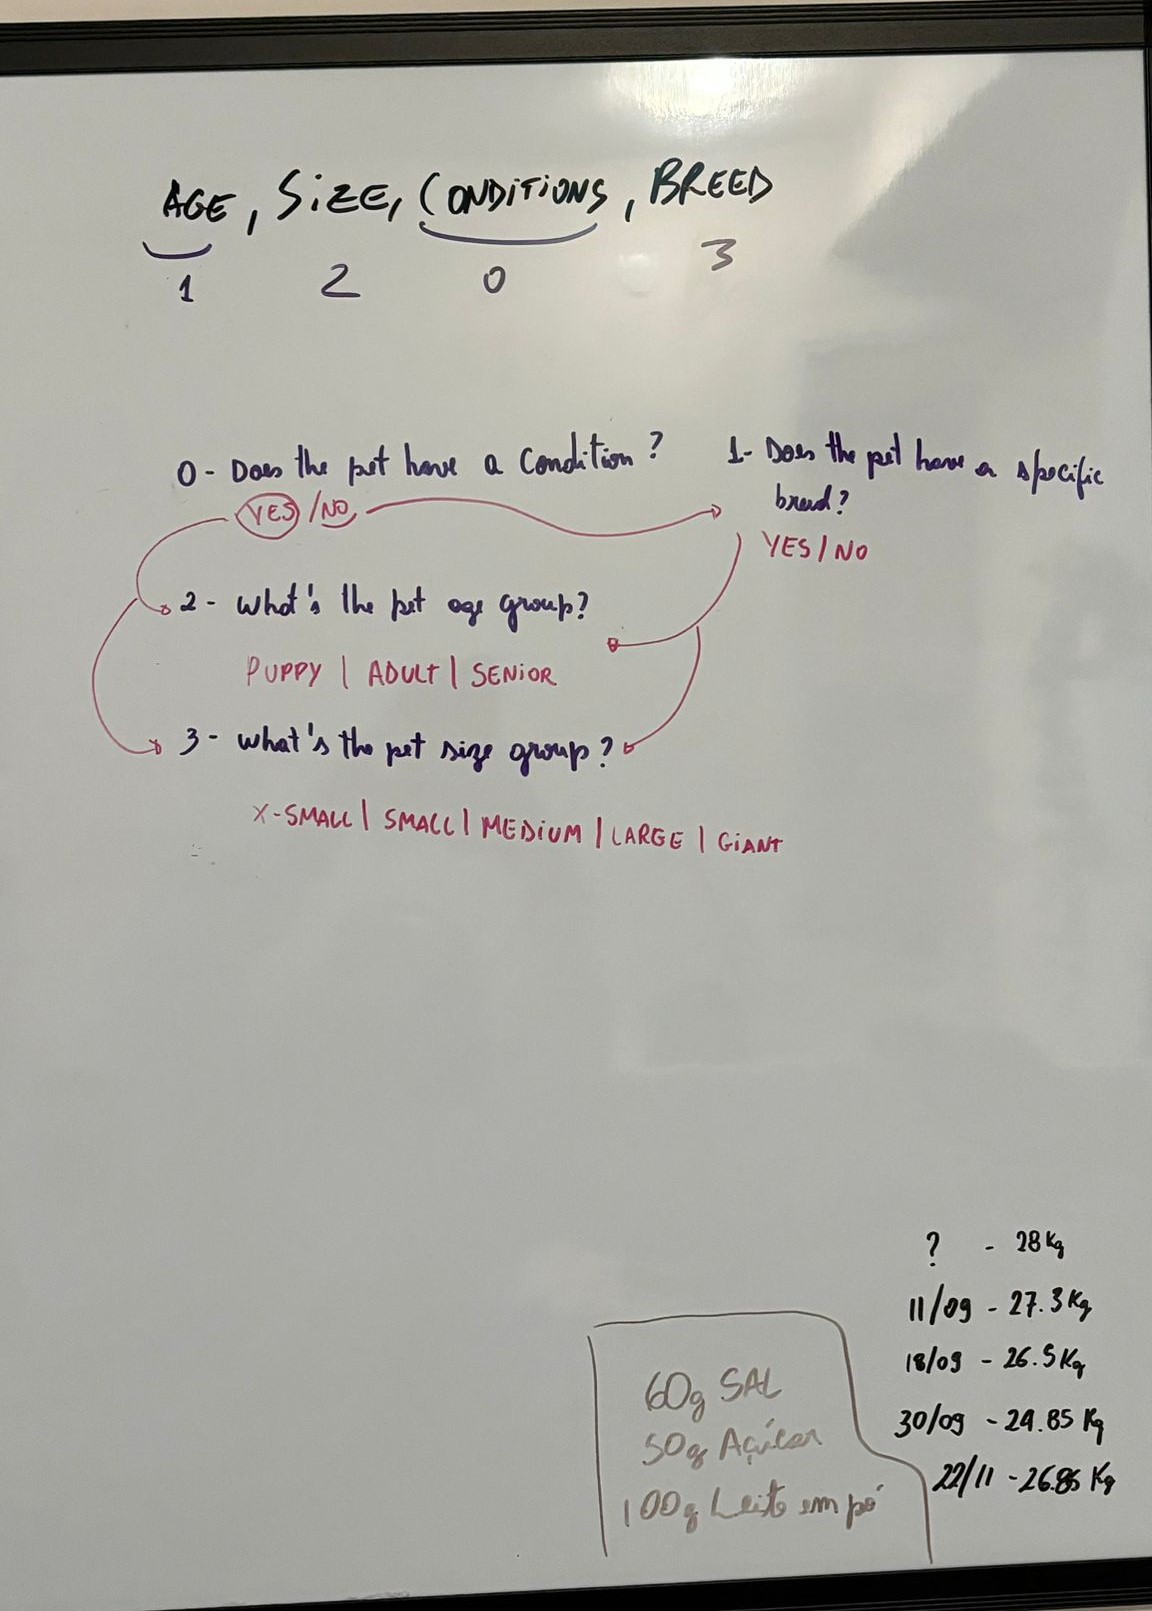 AGE, SiZE, CONDiTiONS, BREED
1 2 0 3
0 - Does the pet have a Condition?
YES / NO
1- Does the pet have a specific
breed?
YES / NO
2 - What's the pet age group?
PUPPY | ADULT | SENiOR
3 - What's the pet size group?
X-SMALL | SMALL | MEDiUM | LARGE | GiANT
? - 28 Kg
11/09 - 27.3 Kg
18/09 - 26.5 Kg
30/09 - 24.85 Kg
22/11 - 26.85 Kg
60g SAL
50g Açúcar
100g Leite em pó